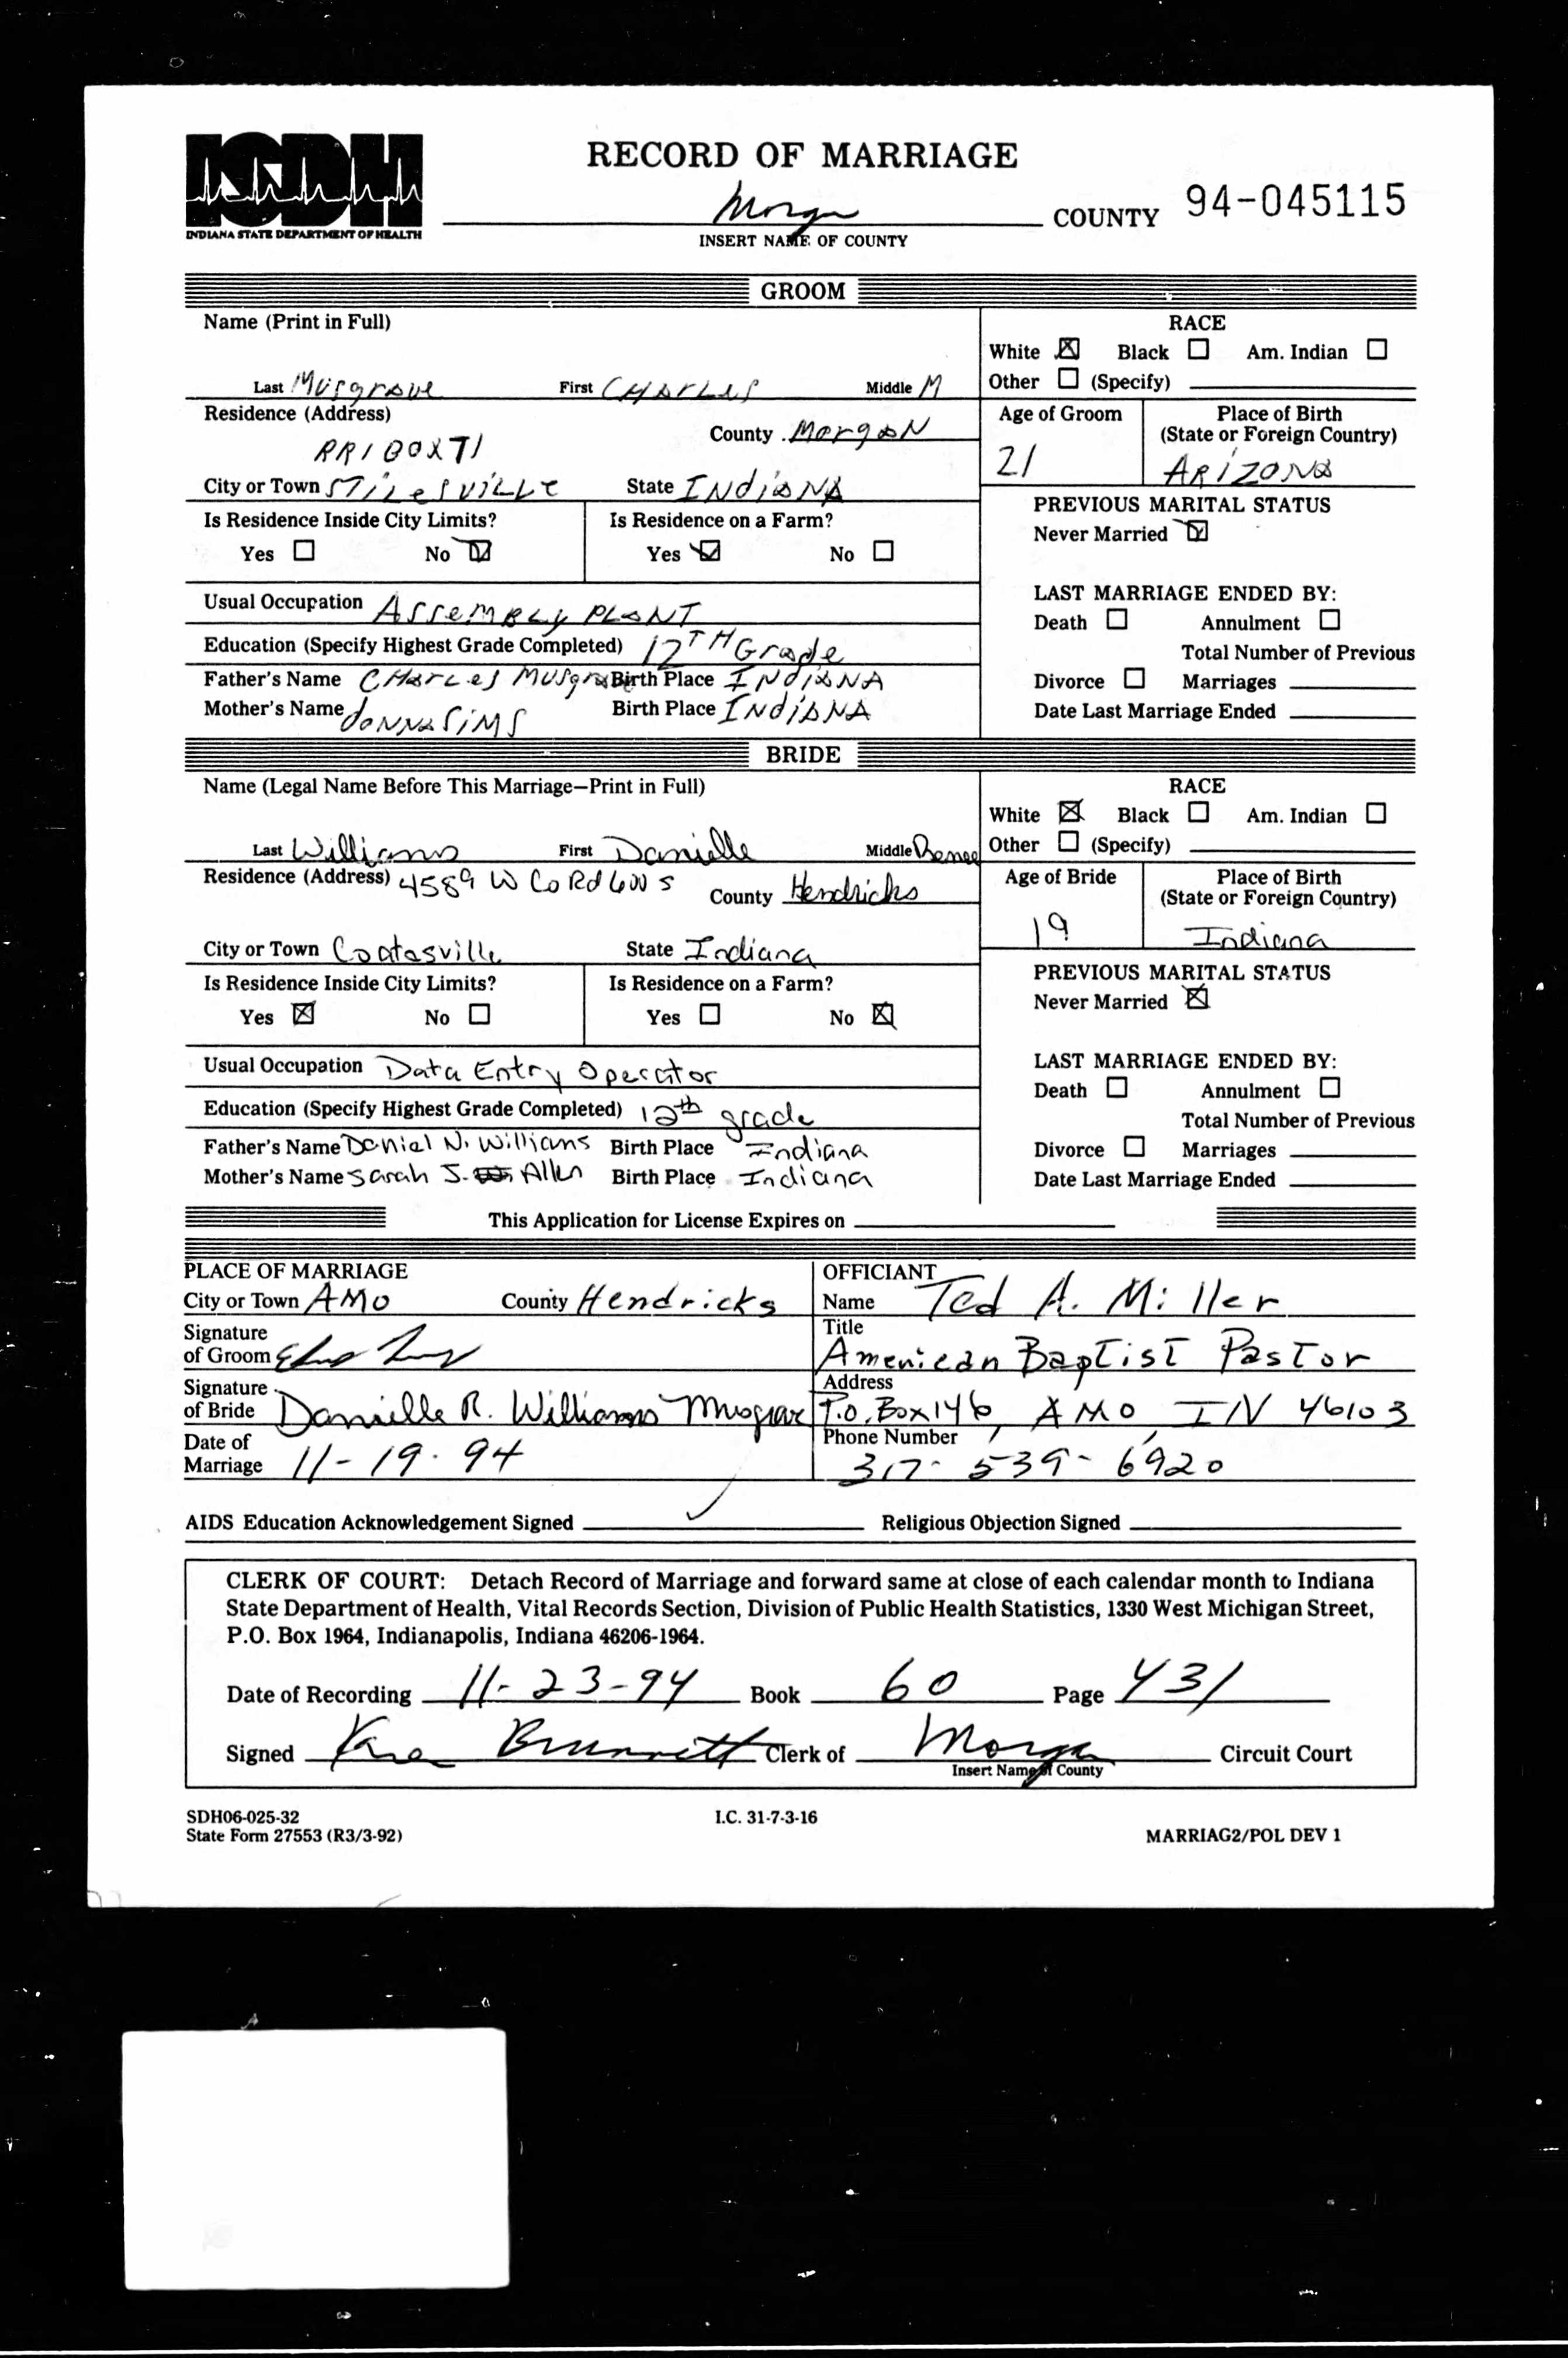 ISDH
INDIANA STATE DEPARTMENT OF HEALTH
RECORD OF MARRIAGE
Morgan COUNTY 94-045115
INSERT NAME OF COUNTY
GROOM
Name (Print in Full)
Last Musgrove First CHARLES Middle M
RACE
White ☒ Black ☐ Am. Indian ☐
Other ☐ (Specify)
Residence (Address)
RR1 BOX 71
County Morgan
City or Town STILESVILLE State INDIANA
Age of Groom
21
Place of Birth
(State or Foreign Country)
ARIZONA
Is Residence Inside City Limits?
Yes ☐ No ☑
Is Residence on a Farm?
Yes ☑ No ☐
PREVIOUS MARITAL STATUS
Never Married ☑
Usual Occupation ASSEMBLY PLANT
Education (Specify Highest Grade Completed) 12TH Grade
Father's Name CHARLES Musgrove Birth Place INDIANA
Mother's Name DONNA SIMS Birth Place INDIANA
LAST MARRIAGE ENDED BY:
Death ☐ Annulment ☐
Total Number of Previous
Divorce ☐ Marriages
Date Last Marriage Ended
BRIDE
Name (Legal Name Before This Marriage—Print in Full)
Last Williams First Danielle Middle Renee
RACE
White ☒ Black ☐ Am. Indian ☐
Other ☐ (Specify)
Residence (Address) 4589 W Co Rd 600 S County Hendricks
City or Town Coatesville State Indiana
Age of Bride
19
Place of Birth
(State or Foreign Country)
Indiana
Is Residence Inside City Limits?
Yes ☒ No ☐
Is Residence on a Farm?
Yes ☐ No ☒
PREVIOUS MARITAL STATUS
Never Married ☒
Usual Occupation Data Entry Operator
Education (Specify Highest Grade Completed) 12th grade
Father's Name Daniel N. Williams Birth Place Indiana
Mother's Name Sarah J. Allen Birth Place Indiana
LAST MARRIAGE ENDED BY:
Death ☐ Annulment ☐
Total Number of Previous
Divorce ☐ Marriages
Date Last Marriage Ended
This Application for License Expires on
PLACE OF MARRIAGE
City or Town AMO County Hendricks
Signature
of Groom
Signature
of Bride Danielle R. Williams Musgrove
Date of
Marriage 11-19-94
OFFICIANT
Name Ted A. Miller
Title
American Baptist Pastor
Address
P.O. Box 146, AMO, IN 46103
Phone Number
317-539-6920
AIDS Education Acknowledgement Signed ✓ Religious Objection Signed
CLERK OF COURT: Detach Record of Marriage and forward same at close of each calendar month to Indiana
State Department of Health, Vital Records Section, Division of Public Health Statistics, 1330 West Michigan Street,
P.O. Box 1964, Indianapolis, Indiana 46206-1964.
Date of Recording 11-23-94 Book 60 Page 431
Signed Brunnett Clerk of Morgan Circuit Court
Insert Name of County
SDH06-025-32
State Form 27553 (R3/3-92)
I.C. 31-7-3-16
MARRIAG2/POL DEV 1